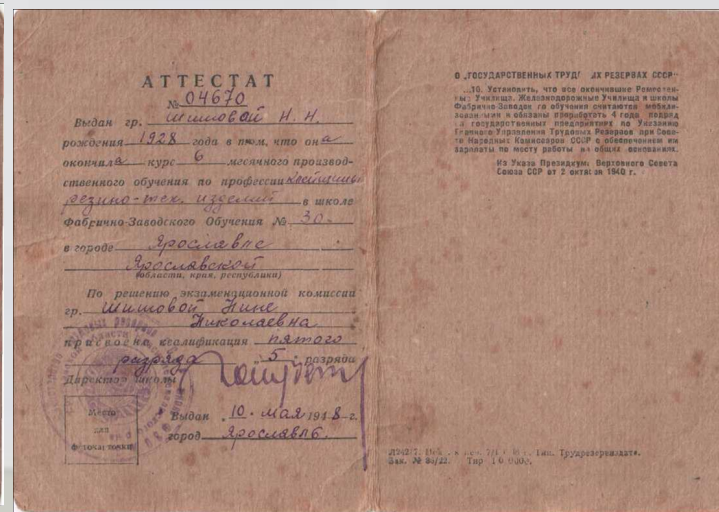 АТТЕСТАТ
№ 04670
Выдан гр. Шиловой Н. Н.
рождения 1928 года в том, что она
окончила курс 6 месячного производ-
ственного обучения по профессии
резино-тех. изделий в школе
Фабрично-Заводского Обучения № 30
в городе Ярославле
Ярославской
(области, края, республики)
По решению экзаменационной комиссии
гр. Шиловой Нине
Николаевна
присвоена квалификация пятого
разряда 5 разряда
Директор школы
Место
для
фотокарточки
Выдан 10 мая 1948 г.
город Ярославль
О „ГОСУДАРСТВЕННЫХ ТРУДОВЫХ РЕЗЕРВАХ СССР“
...10. Установить, что все окончившие Ремеслен-
ны: Училища, Железнодорожные Училища и школы
Фабрично-Заводского обучения считаются мобили-
зованными и обязаны проработать 4 года подряд
на государственных предприятиях по Указанию
Главного Управления Трудовых Резервов при Сове-
те Народных Комиссаров СССР с обеспечением им
зарплаты по месту работы на общих основаниях.
Из Указа Президиума Верховного Совета
Союза ССР от 2 октября 1940 г.
Тип. Трудрезервиздата.
Зак. № 86/22. Тир.